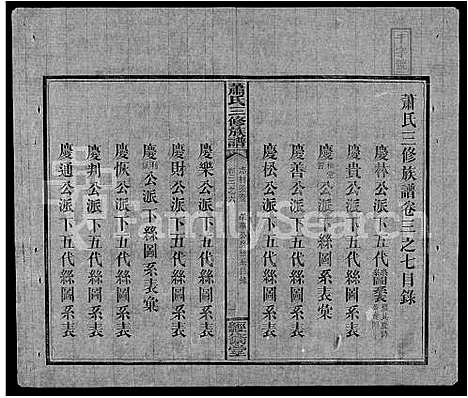 蕭氏三修族譜卷三之七目錄
慶林公派下五代絲圖系表
慶貴公派下五代絲圖系表
慶善公派下五代絲圖系表
公派絲圖系表彙
慶松公派下五代絲圖系表
蕭氏三修族譜
慶樂公派下五代絲圖系表
慶財公派下五代絲圖系表
公派下絲圖系表彙
慶恢公派下五代絲圖系表
慶邦公派下五代絲圖系表
慶通公派下五代絲圖系表
FamilySearch